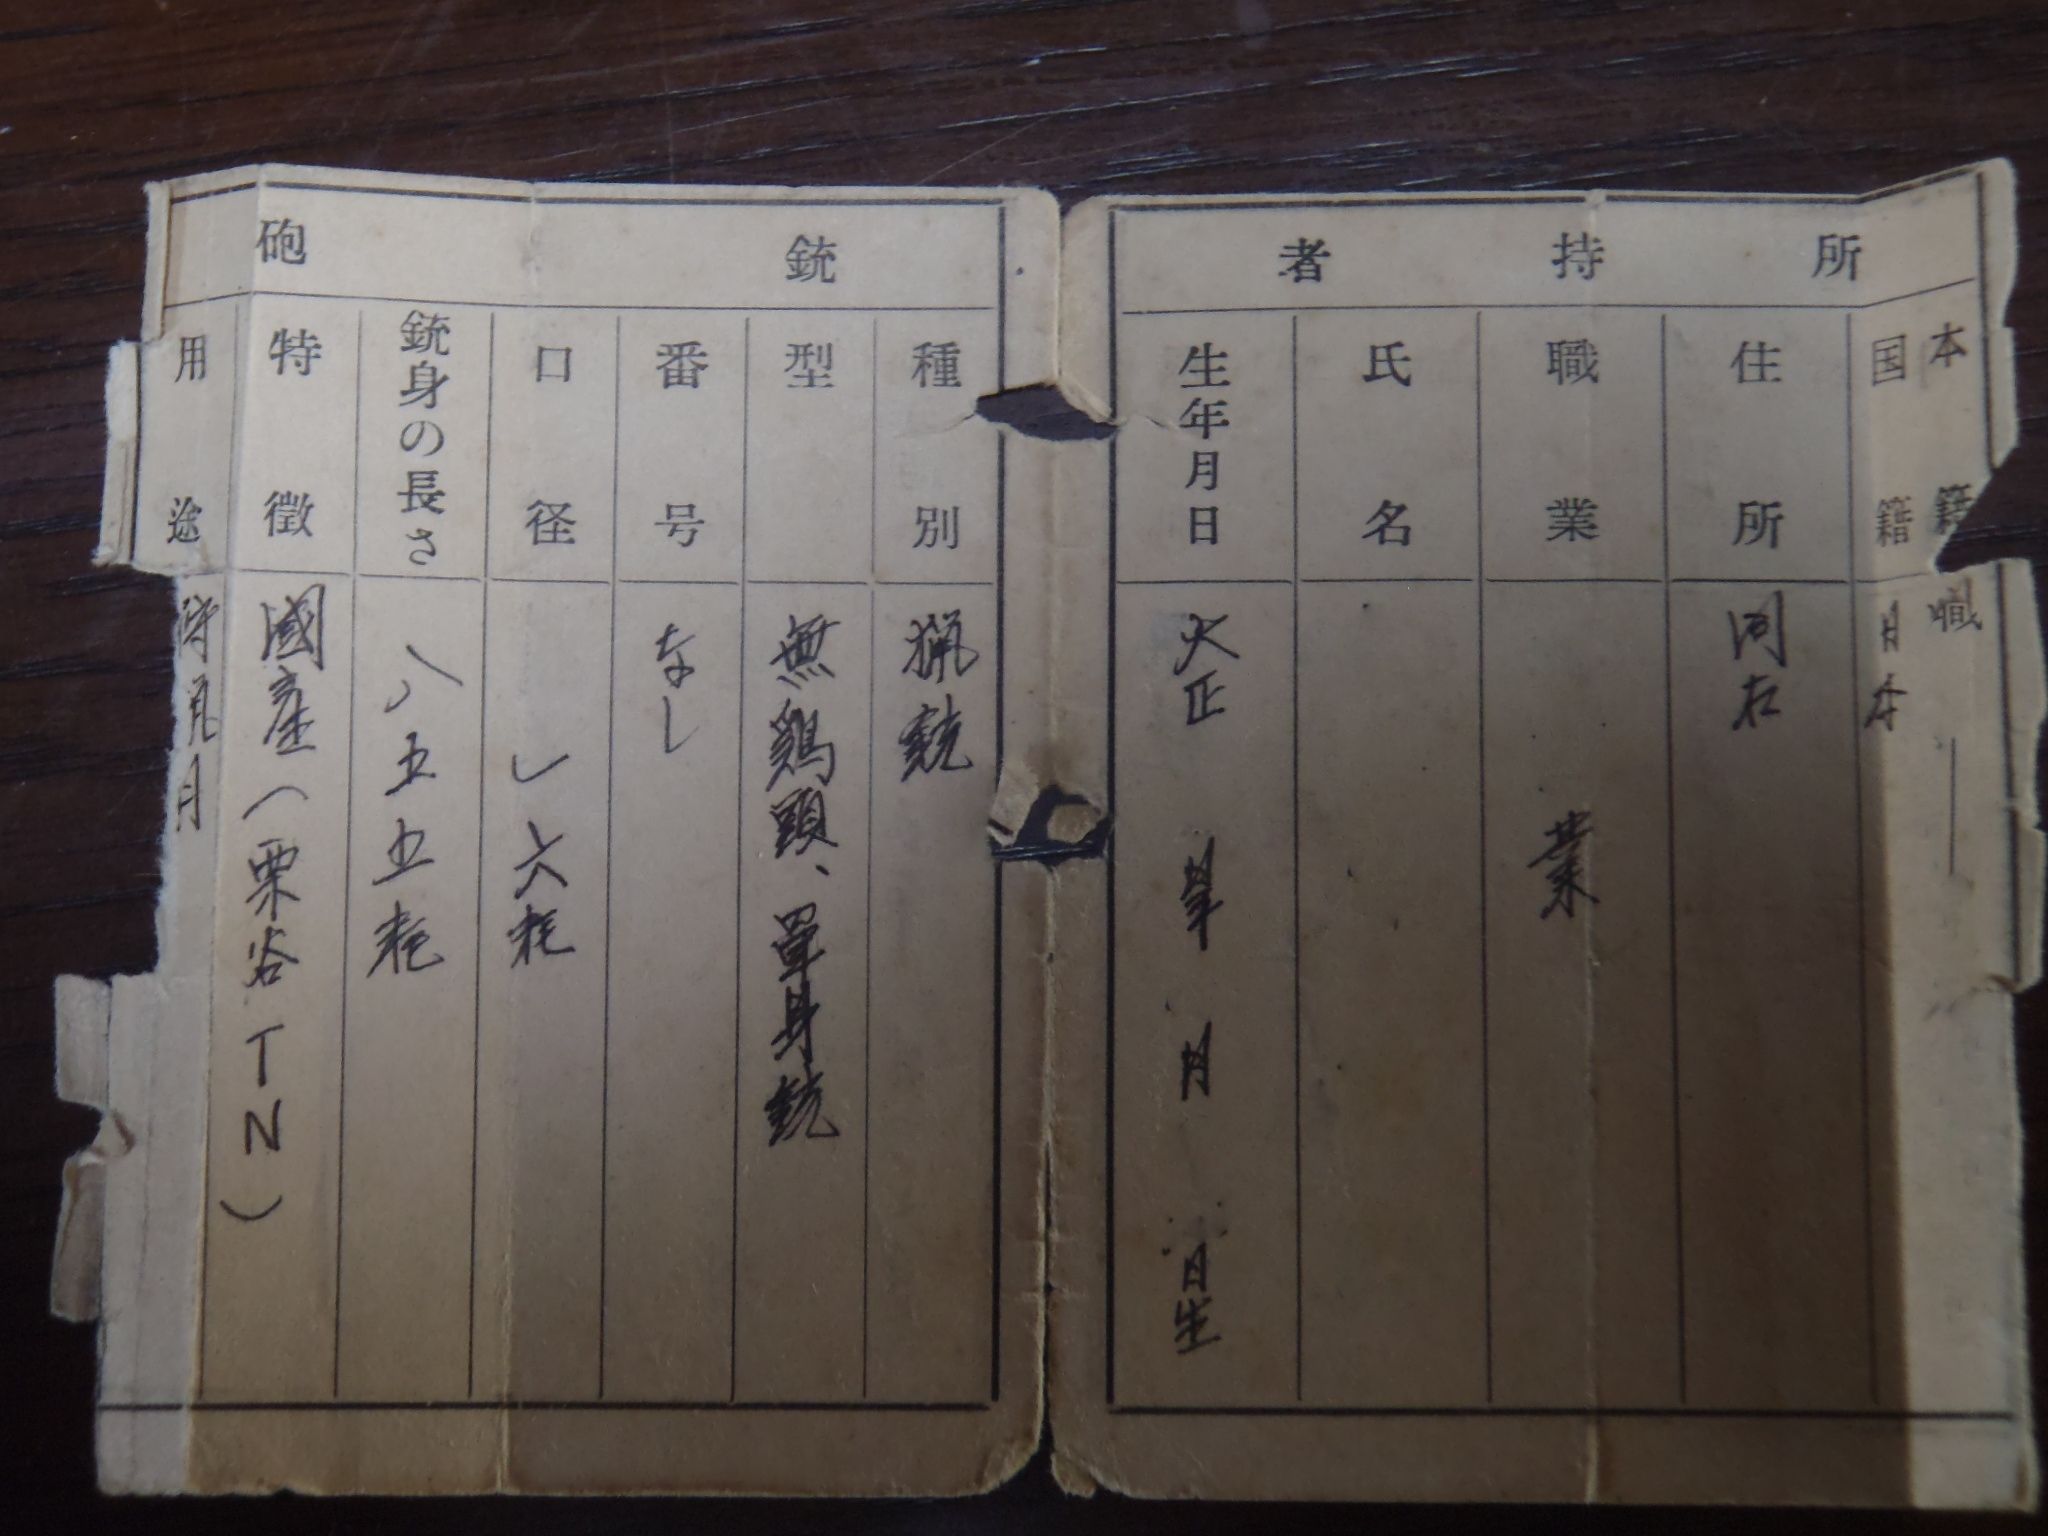 所持者
本籍
国籍 日本
住所 同右
職業 業
氏名
生年月日 大正 年 月 日生
銃砲
種別 猟銃
型 無鶏頭、単身銃
番号 なし
口径 一六粍
銃身の長さ 八五五粍
特徴 國産(栗谷TN)
用途 狩猟用